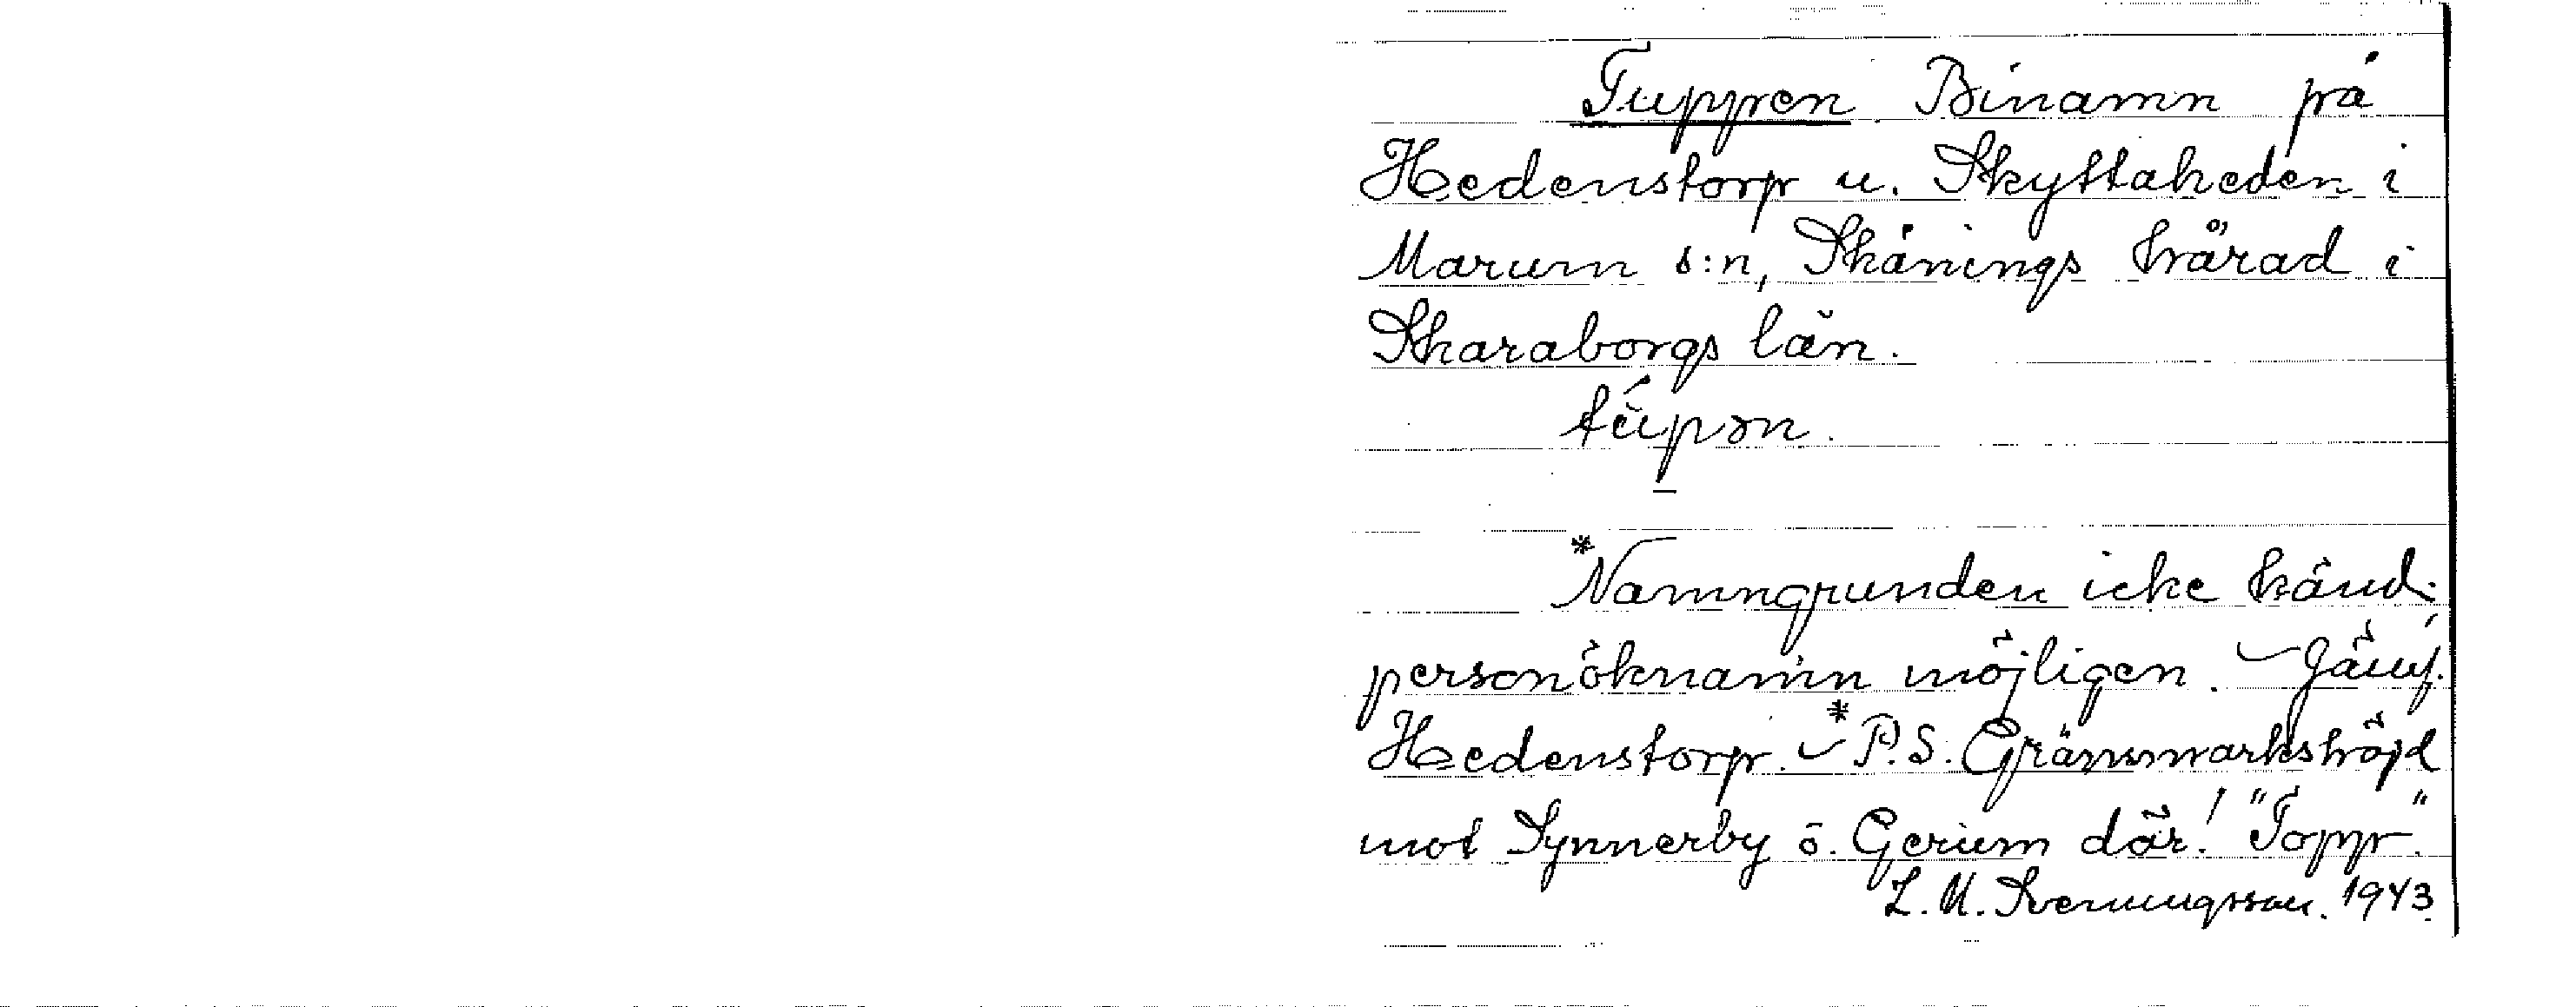 Tuppen. Binamn på
Hedenstorp u. Skyttaheden i
Marum s:n, Skånings härad i
Skaraborgs län.
túpən.
*Namngrunden icke känd;
personöknamn möjligen. – Jämf.
Hedenstorp. – *P.S. Gränsmarkshöjd
mot Synnerby o. Gerum där! "Topp".
L. M. Svenungsson. 1943